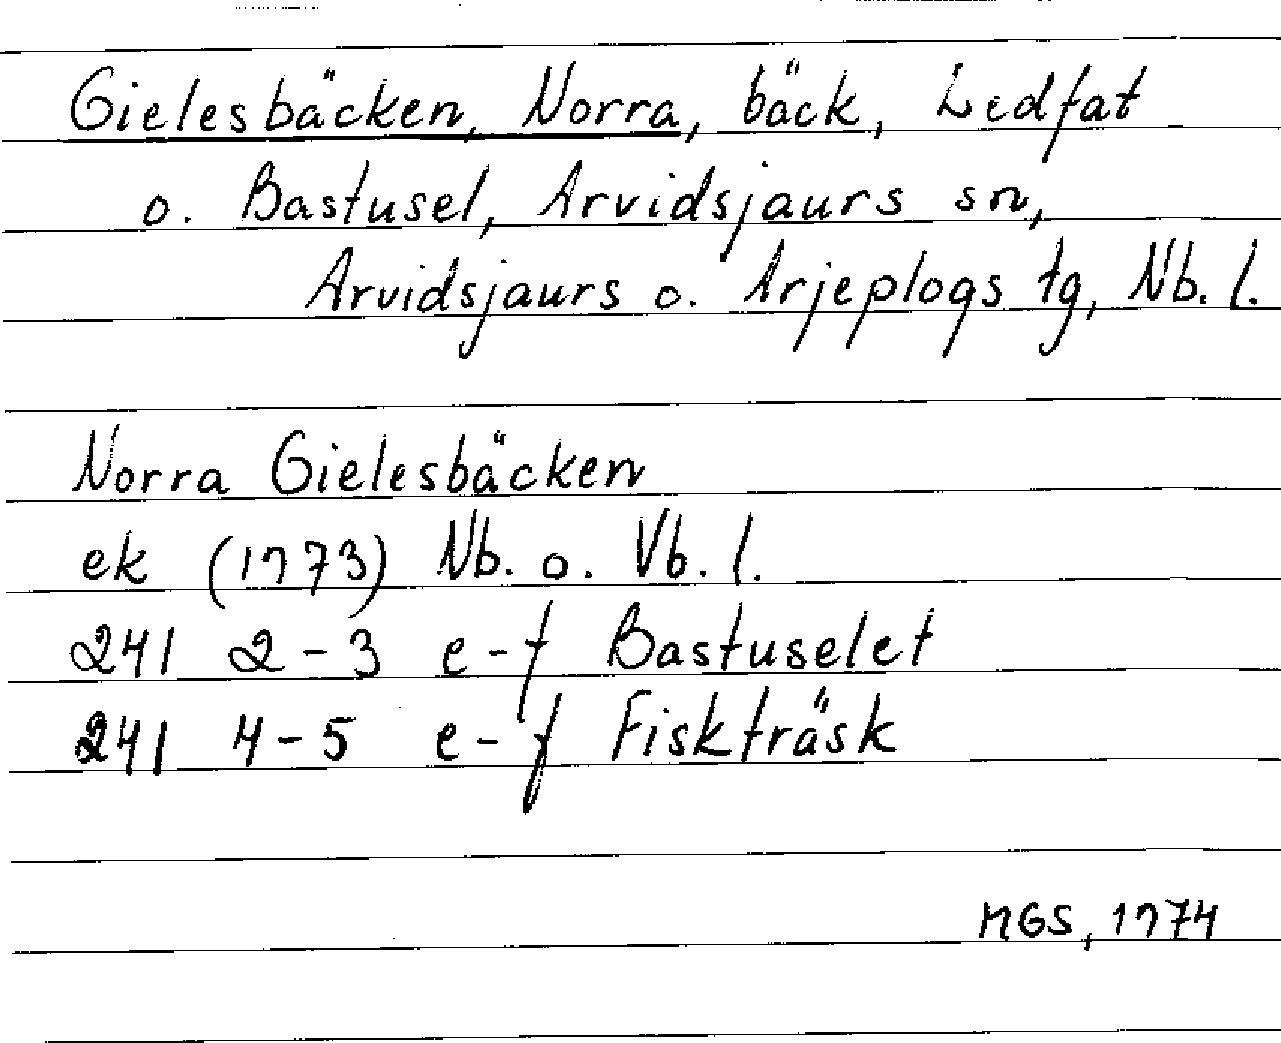 Gielesbäcken, Norra, bäck, Ledfat
o. Bastusel, Arvidsjaurs sn,
Arvidsjaurs o. Arjeplogs tg, Nb. l.
Norra Gielesbäcken
ek (1973) Nb. o. Vb. l.
24I 2-3 e-f Bastuselet
24I 4-5 e-f Fiskträsk
MGS, 1974